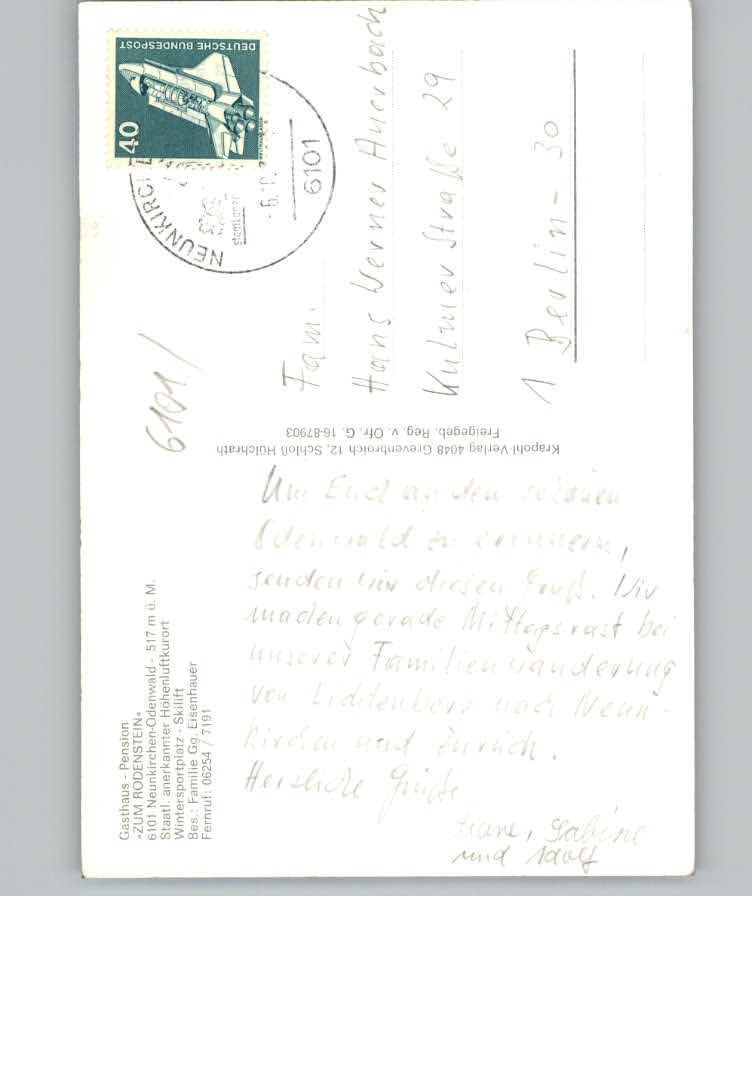 Gasthaus - Pension
»ZUM RODENSTEIN«
6101 Neunkirchen-Odenwald - 517 m ü. M.
Staatl. anerkannter Höhenluftkurort
Wintersportplatz - Skilift
Bes.: Familie Gg. Eisenhauer
Fernruf: 06254 / 7191
Um Euch an den schönen
Odenwald zu erinnern,
senden wir diesen Gruß. Wir
machen gerade Mittagsrast bei
unserer Familienwanderung
von Lichtenberg nach Neun-
kirchen und zurück.
Herzliche Grüße
Liane, Sabine
und Adolf
Krapohl-Verlag 4048 Grevenbroich 12, Schloß Hülchrath
Freigegeb. Reg. v. Ofr. G. 16-87903
6101 /
DEUTSCHE BUNDESPOST
40
NEUNKIRCHE
6101
- 6.10.
Fam.
Hans Werner Auerbach
Kulmer Straße 29
1 Berlin - 30